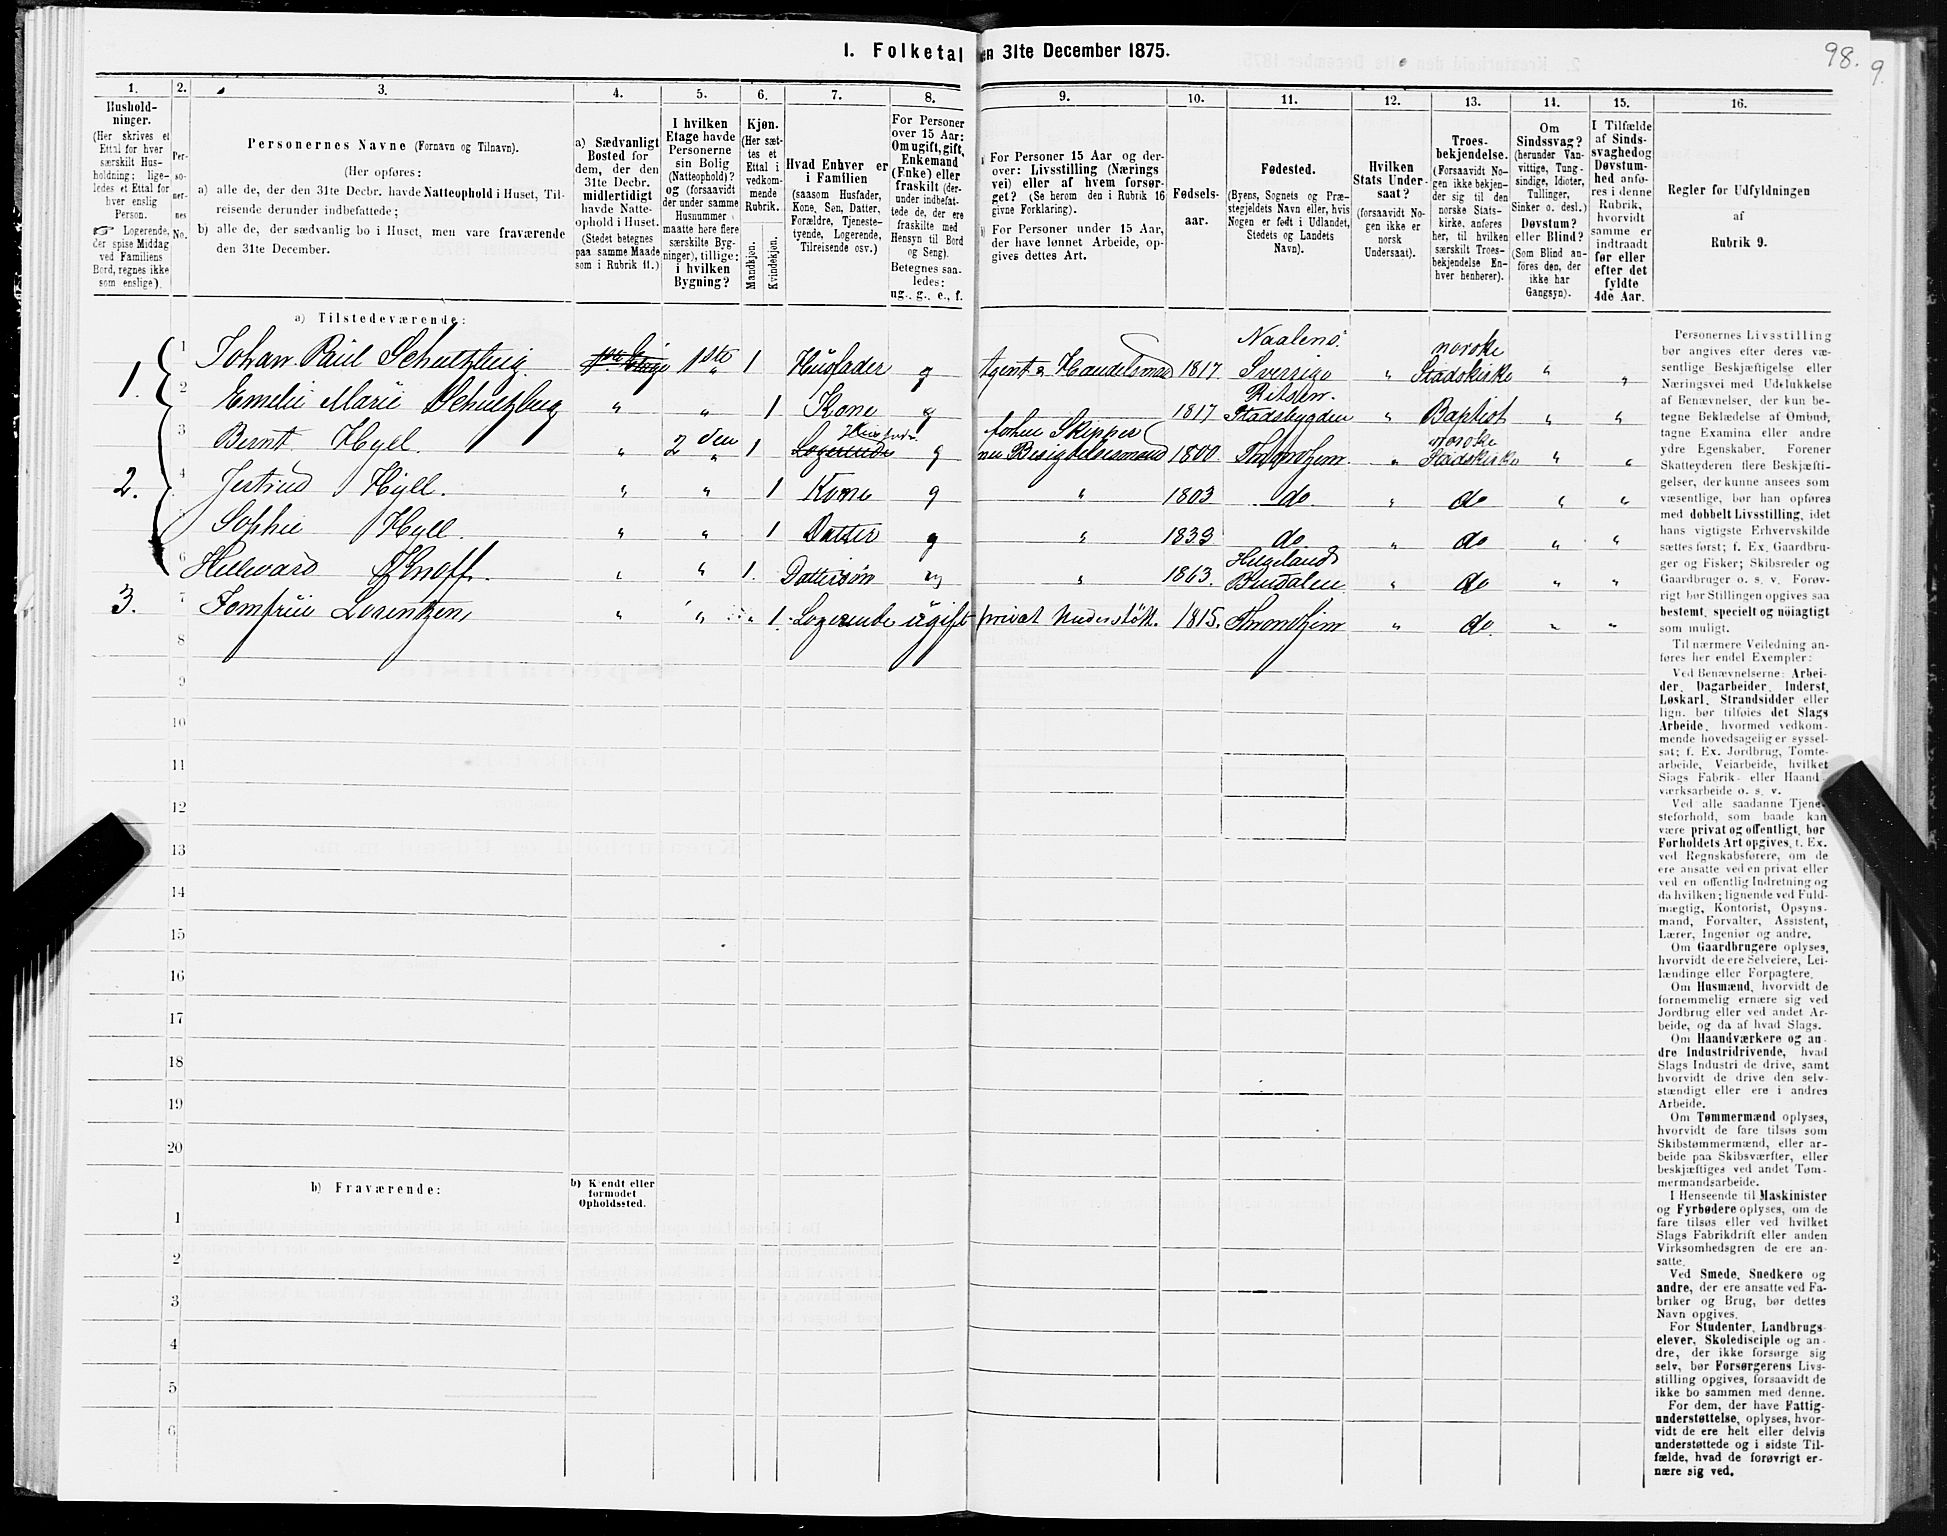 98. 9.
I. Folketal en 31te December 1875.
1. 2. 3. 4. 5. 6. 7. 8. 9. 10. 11. 12. 13. 14. 15. 16.
Hushold-
ninger.
(Her skrives et
Ettal for hver
særskilt Hus-
holdning; lige-
ledes et Ettal for
hver enslig
Person.
☞ Logerende,
der spise Middag
ved Familiens
Bord, regnes ikke
som enslige).
Per-
so-
ner-
nes
No.
Personernes Navne (Fornavn og Tilnavn).
(Her opføres:
a) alle de, der den 31te Decbr. havde Natteophold i Huset, Til-
reisende derunder indbefattede;
b) alle de, der sædvanlig bo i Huset, men vare fraværende
den 31te December.
a) Sædvanligt
Bosted for
dem, der den
31te Decbr.
midlertidigt
havde Natte-
ophold i Huset.
(Stedet betegnes
paa samme Maade
som i Rubrik 11.)
I hvilken
Etage havde
Personerne
sin Bolig
(Natteophold)?
og (forsaavidt
der under samme
Husnummer
maatte høre flere
særskilte Byg-
ninger), tillige:
i hvilken
Bygning?
Kjøn.
(Her sæt-
tes et
Ettal i
vedkom-
mende
Rubrik.
Mandkjøn.
Kvindekjøn.
Hvad Enhver er
i Familien
(saasom Husfader,
Kone, Søn, Datter,
Forældre, Tjeneste-
tyende, Logerende,
Tilreisende osv.)
For Personer
over 15 Aar:
Om ugift, gift,
Enkemand
(Enke) eller
fraskilt (der-
under indbefat-
tede de, der ere
fraskilte med
Hensyn til Bord
og Seng).
Betegnes saa-
ledes:
ug., g., e., f.
a) For Personer 15 Aar og der-
over: Livsstilling (Nærings
vei) eller af hvem forsør-
get? (Se herom den i Rubrik 16
givne Forklaring).
b) For Personer under 15 Aar,
der have lønnet Arbeide, op-
gives dettes Art.
Fødsels-
aar.
Fødested.
(Byens, Sognets og Præ-
stegjeldets Navn eller, hvis
Nogen er født i Udlandet,
Stedets og Landets
Navn).
Hvilken
Stats Under-
saat?
(forsaavidt No-
gen ikke er
norsk
Undersaat).
Troes-
bekjendelse.
(Forsaavidt No-
gen ikke bekjen-
der sig til den
norske Stats-
kirke, anføres
her, til hvilken
særskilt Troes-
bekjendelse En-
hver henhører).
Om
Sindssvag?
(herunder Van-
vittige, Tung-
sindige, Idioter,
Tullinger,
Sinker o. desl.)
Døvstum?
eller Blind?
(Som Blind an-
føres den, der
ikke har
Gangsyn).
I Tilfælde
af Sinds-
svaghed og
Døvstum-
hed anfø-
res i denne
Rubrik,
hvorvidt
samme er
indtraadt
før eller
efter det
fyldte
4de Aar.
Regler for Udfyldningen
af
Rubrik 9.
a) Tilstedeværende:
1. 1 Johan Paul Schultzberg 1ste " 1 Husfader g Agent & Handelsmand 1817 Naalenö Sverrige " norske Stadskirke " "
2 Emelie Marie Schultzberg " " 1 Kone g 1817 Ritsen Stadsbygden " Baptist " "
2. 3 Bernt Hyll. " 2den " 1 Logerende Husfader g forhen Skipper nu Besigtelsesmand 1800 Throndhjem " norske Stadskirke " "
4 Jertrud Hyll. " " 1 Kone g " 1803 do " do " "
5 Sophie Hyll. " " 1 Datter g " 1839 do " do " "
6 Hellevard Knoff. " " 1. Dattersön ug " 1863. Helgeland Bindalen " do " "
3. 7 Jomfrue Lorentzen, " " " 1. Logerende ugift privat Understött. 1815. Throndhjem " do. " "
8
9
10
11
12
13
14
15
16
17
18
19
20
b) Fraværende:
b) Kjendt eller
formodet
Opholdssted.
1
2
3
4
5
6
Personernes Livsstilling
bør angives efter deres væ-
sentlige Beskjæftigelse eller
Næringsvei med Udelukkelse
af Benævnelser, der kun be-
tegne Beklædelse af Ombud,
tagne Examina eller andre
ydre Egenskaber. Forener
Skatteyderen flere Beskjæfti-
gelser, der kunne ansees som
væsentlige, bør han opføres
med dobbelt Livsstilling, idet
hans vigtigste Erhvervskilde
sættes først; f. Ex. Gaardbru-
ger og Fisker; Skibsreder og
Gaardbruger o. s. v. Forøv-
rigt bør Stillingen opgives saa
bestemt, specielt og nöiagtigt
som muligt.
Til nærmere Veiledning an-
føres her endel Exempler:
Ved Benævnelserne: Arbei-
der, Dagarbeider, Inderst,
Løskarl, Strandsidder eller
lign. bør tilføies det Slags
Arbeide, hvormed vedkom-
mende hovedsagelig er syssel-
sat; f. Ex. Jordbrug, Tomte-
arbeide, Veiarbeide, hvilket
Slags Fabrik- eller Haand-
værksarbeide o. s. v.
Ved alle saadanne Tjene-
steforhold, som baade kan
være privat og offentligt, bør
Forholdets Art opgives, f. Ex.
ved Regnskabsførere, om de
ere ansatte ved en privat eller
ved en offentlig Indretning og
da hvilken; lignende ved Fuld-
mægtig, Kontorist, Opsyns-
mand, Forvalter, Assistent,
Lærer, Ingeniør og andre.
Om Gaardbrugere oplyses,
hvorvidt de ere Selveiere, Lei-
lændinge eller Forpagtere.
Om Husmænd, hvorvidt de
fornemmelig ernære sig ved
Jordbrug eller ved andet Ar-
beide, og da af hvad Slags.
Om Haandværkere og an-
dre Industridrivende, hvad
Slags Industri de drive, samt
hvorvidt de drive den selv-
stændigt eller ere i andres
Arbeide.
Om Tømmermænd oplyses,
hvorvidt de fare tilsøs som
Skibstømmermænd, eller ar-
beide paa Skibsværfter, eller
beskjæftiges ved andet Tøm-
mermandsarbeide.
I Henseende til Maskinister
og Fyrbødere oplyses, om de
fare tilsøs eller ved hvilket
Slags Fabrikdrift eller anden
Virksomhedsgren de ere an-
satte.
Ved Smede, Snedkere og
andre, der ere ansatte ved Fa-
briker og Brug, bør dettes
Navn opgives.
For Studenter, Landbrugs-
elever, Skoledisciple og an-
dre, der ikke forsørge sig
selv, bør Forsørgerens Livs-
stilling opgives, forsaavidt de
ikke bo sammen med denne.
For dem, der have Fattig-
understøttelse, oplyses, hvor-
vidt de ere helt eller delvis
understøttede og i sidste Til-
fælde, hvad de forøvrigt er-
nære sig ved.